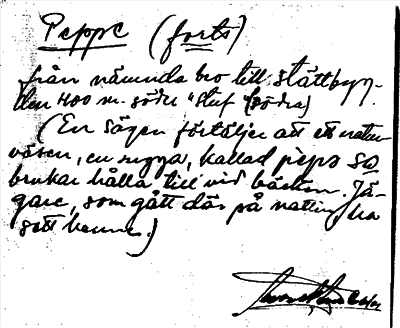 Peppe (forts)
från nämnda bro till slåttbyn-
den 400 m. söder "stuf (södra)
(En sägen förtäljer att ett natur
väsen, en nugga, kallad pepo so
brukar hålla till vid bäcken. Jä-
gare, som gått där på natten ha
sett henne.)